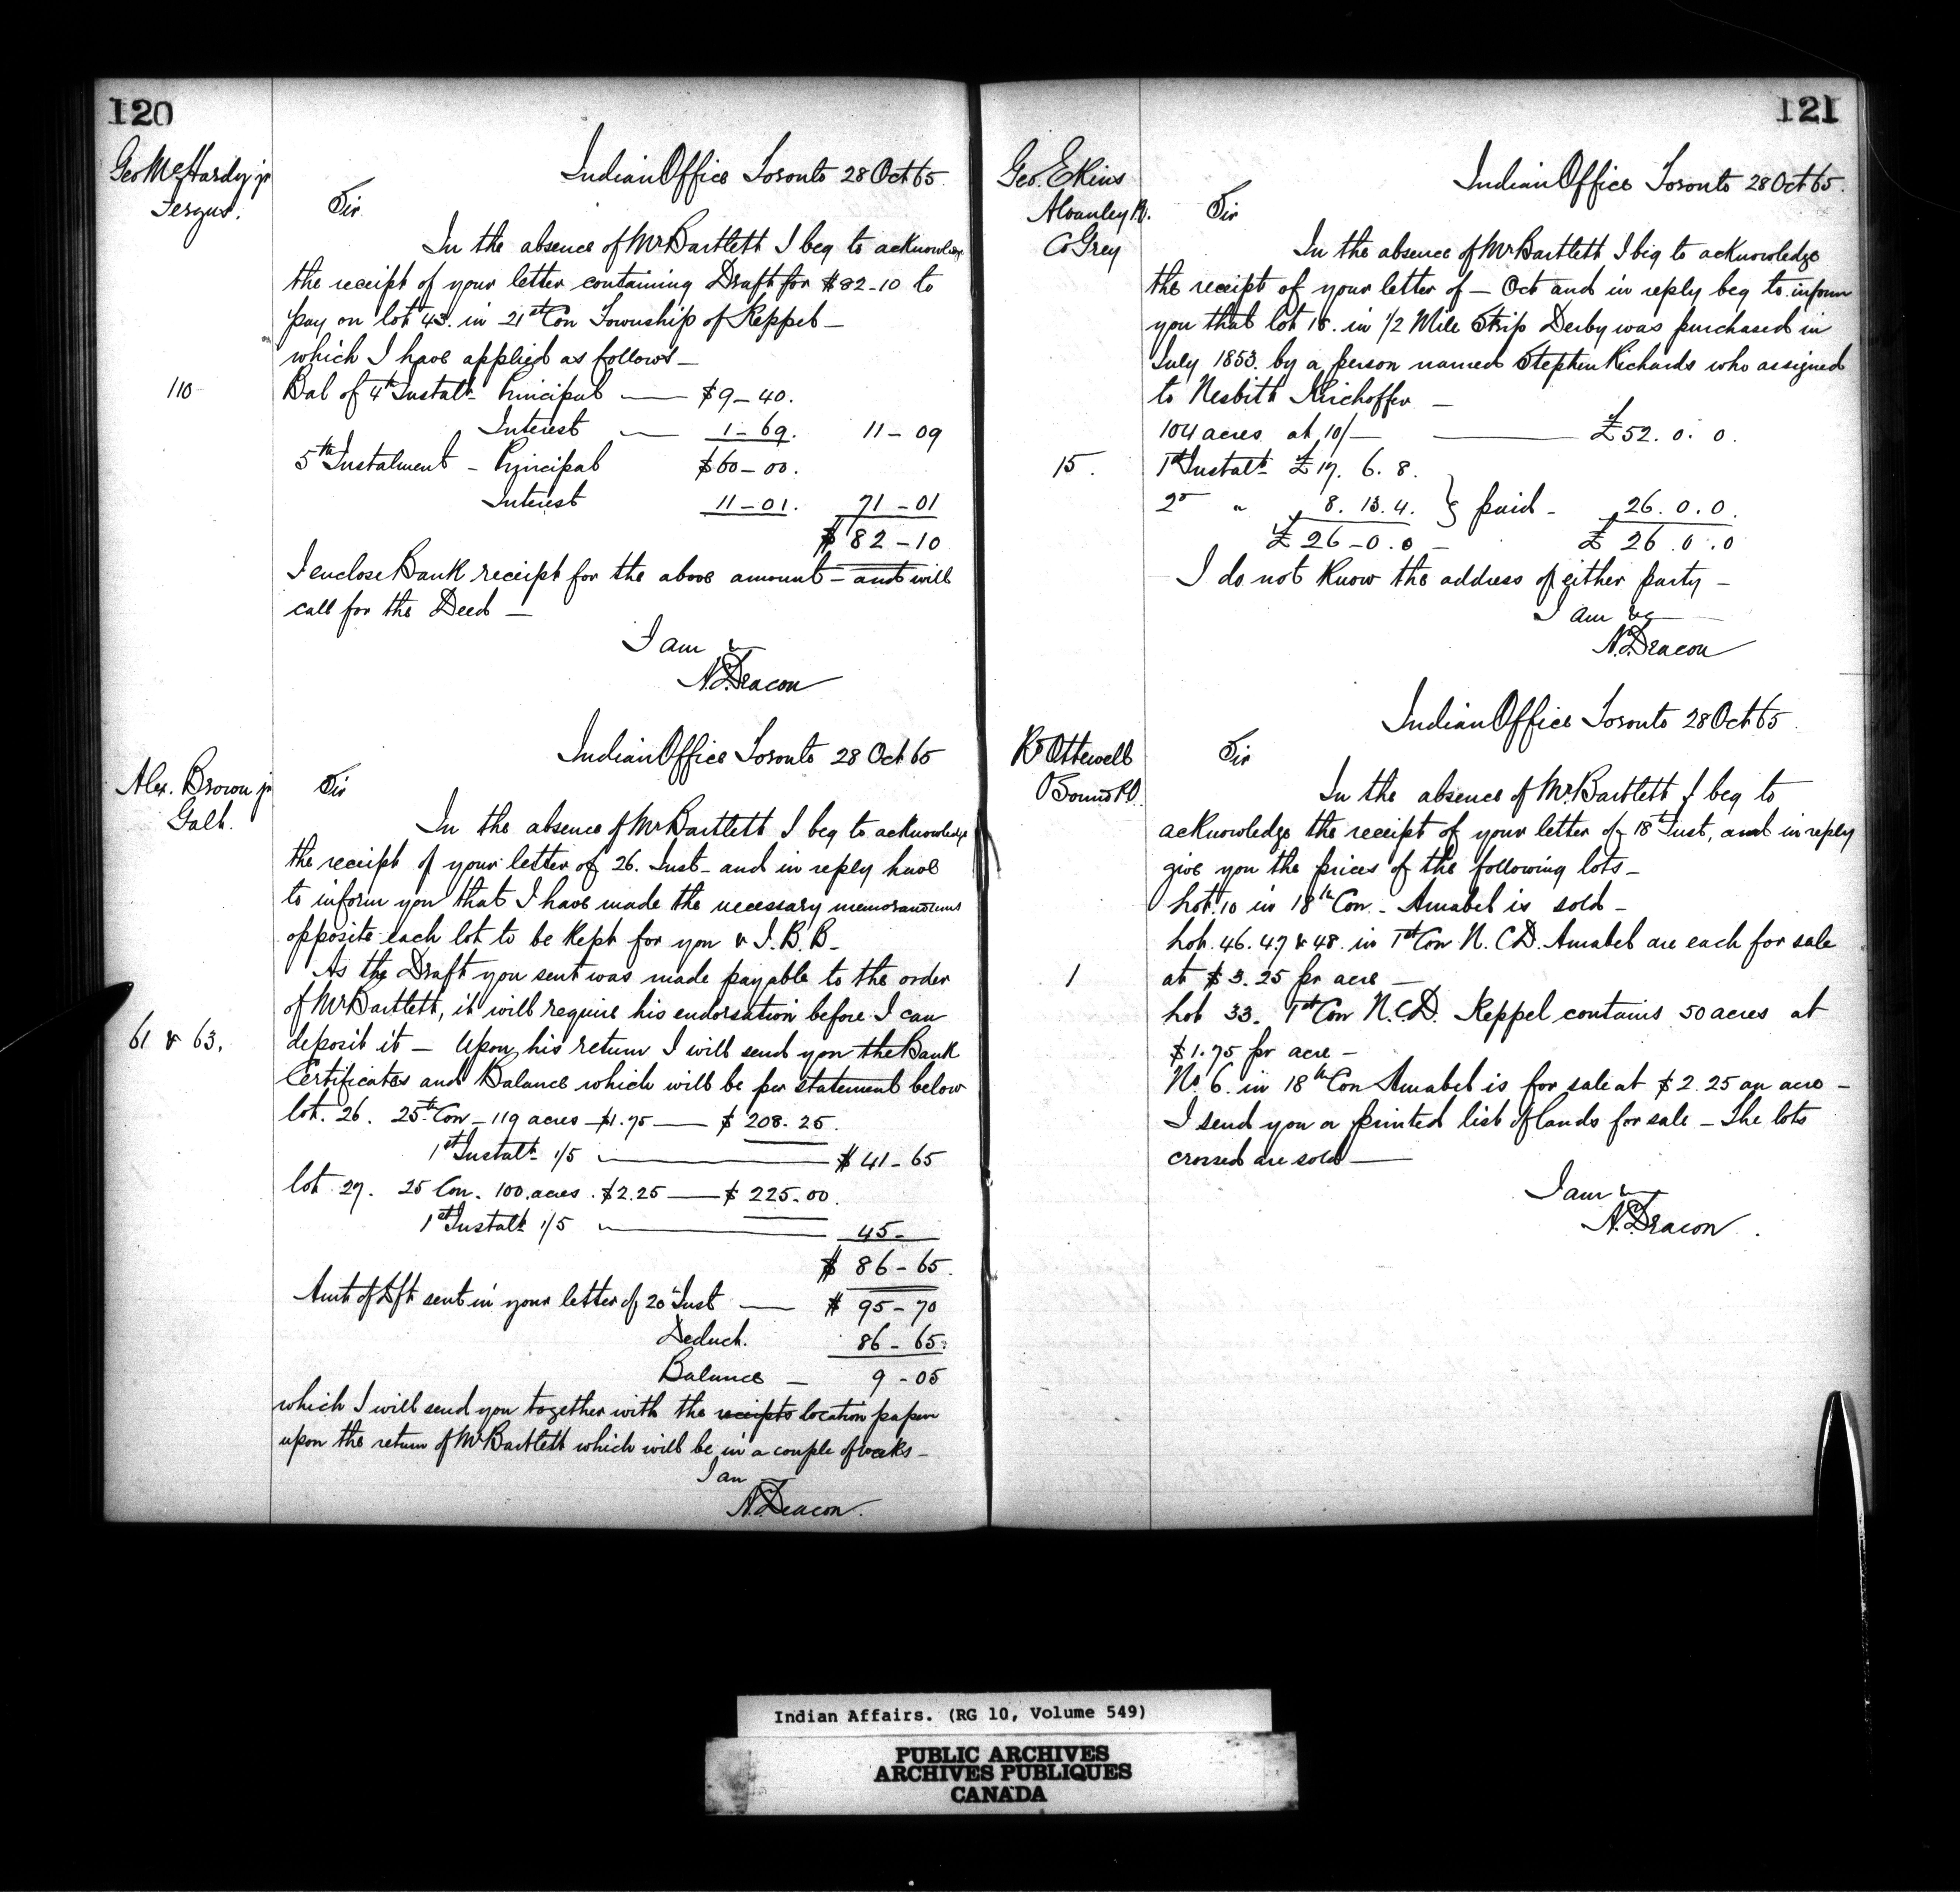 120
Geo McHardy jr
Fergus.
Indian Office Toronto 28 Oct 65.
Sir
In the absence of Mr Bartlett I beg to acknowledge
the receipt of your letter containing Draft for $82-10 to
pay on lot 43. in 21st Con Township of Keppel —
which I have applied as follows —
110 -
Bal of 4th Instalt - Principal — $9-40.
Interest — 1-69. 11-09
5th Instalment - Principal $60-00.
Interest 11-01. 71-01
$ 82-10
I enclose Bank receipt for the above amount — and will
call for the Deed —
I am &
N. Deacon
Indian Office Toronto 28 Oct 65
Alex. Brown jr
Galt.
Sir
In the absence of Mr Bartlett I beg to acknowledge
the receipt of your letter of 26. Inst - and in reply have
to inform you that I have made the necessary memorandums
opposite each lot to be kept for you & J. B. B -
As the Draft you sent was made payable to the order
of Mr Bartlett, it will require his endorsation before I can
61 & 63.
deposit it — Upon his return I will send you the Bank
Certificates and Balance which will be per statement below
lot. 26. 25th Con - 119 acres - $1.75 — $ 208.25.
1st Instalt 1/5 — $ 41-65
lot 27. 25 Con. 100. acres. $2.25 — $ 225.00.
1st Instalt 1/5 — 45-
$ 86-65.
Amt of Dft sent in your letter of 20 Inst — $ 95-70
Deduct. 86-65.
Balance — 9-05
which I will send you together with the receipts location papers
upon the return of Mr Bartlett which will be in a couple of weeks -
I am
N. Deacon.
121
Geo. Ekins
Alvanley P.O.
Co Grey
Indian Office Toronto 28 Oct 65.
Sir
In the absence of Mr Bartlett I beg to acknowledge
the receipt of your letter of — Oct and in reply beg to inform
you that lot 15. in 1/2 Mile Strip Derby was purchased in
July 1853. by a person named Stephen Richards who assigned
to Nesbitt Kirchoffer —
104 acres at 10/— — £52. 0. 0.
15.
1st Instalt £17. 6. 8.
2d " " 8. 13. 4. } paid - " 26. 0. 0.
£ 26-0.0 - £ 26. 0. 0
I do not know the address of either party —
I am &c
N. Deacon
Indian Office Toronto 28 Oct 65.
Rt Ottewell
O Sound P.O.
Sir
In the absence of Mr. Bartlett I beg to
acknowledge the receipt of your letter of 18th Inst, and in reply
give you the prices of the following lots —
Lot. 10 in 18th Con - Amabel is sold —
Lot. 46. 47 & 48. in 1st Con N. C D. Amabel are each for sale
1
at $3.25 pr acre —
Lot 33. 1st Con N. C. D. Keppel contains 50 acres at
$1.75 pr acre —
No. 6. in 18th Con Amabel is for sale at $2.25 an acre —
I send you a printed list of lands for sale — The lots
crossed are sold —
I am &
N. Deacon.
Indian Affairs. (RG 10, Volume 549)
PUBLIC ARCHIVES
ARCHIVES PUBLIQUES
CANADA